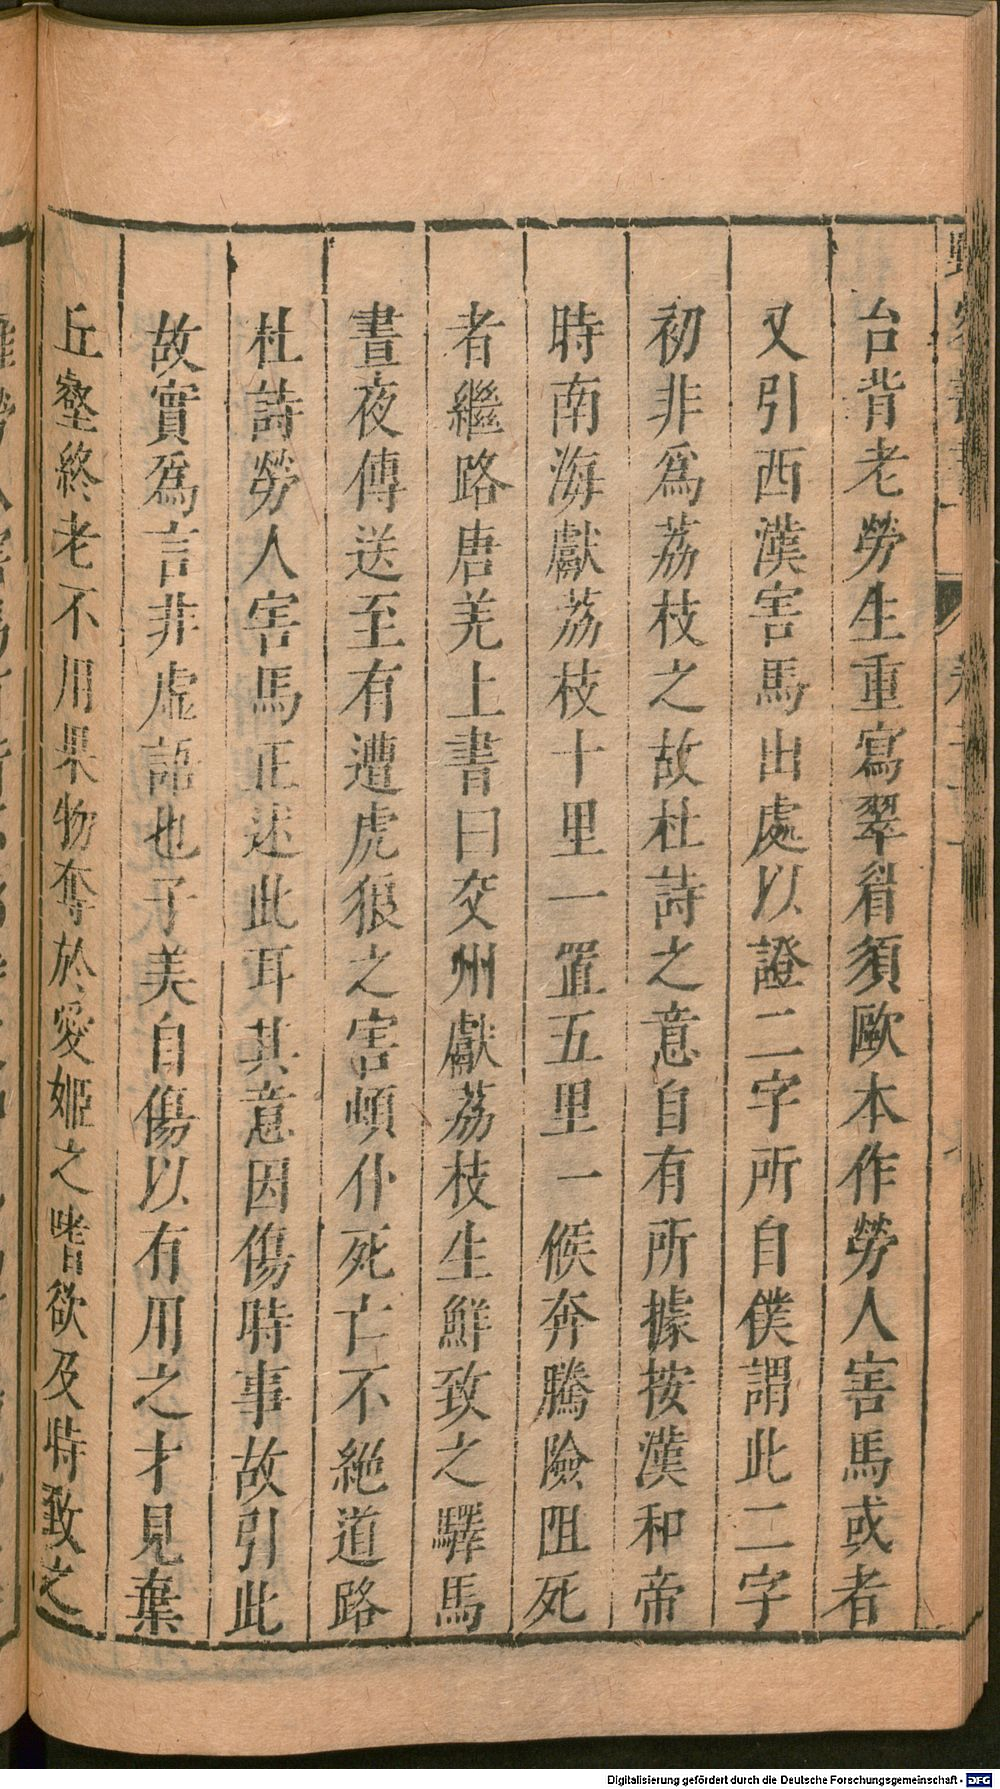 野客叢書
台背老勞生重寫翠眉須歐本作勞人害馬或者
又引西漢害馬出處以證二字所自僕謂此二字
初非為荔枝之故杜詩之意自有所據按漢和帝
時南海獻荔枝十里一置五里一候奔騰險阻死
者繼路唐羌上書曰交州獻荔枝生鮮致之驛馬
晝夜傳送至有遭虎狼之害頓仆死亡不絶道路
杜詩勞人害馬正述此耳其意因傷時事故引此
故實爲言非虛語也子美自傷以有用之才見棄
丘壑終老不用果物奪於愛姬之嗜欲及時致之
Digitalisierung gefördert durch die Deutsche Forschungsgemeinschaft - DFG